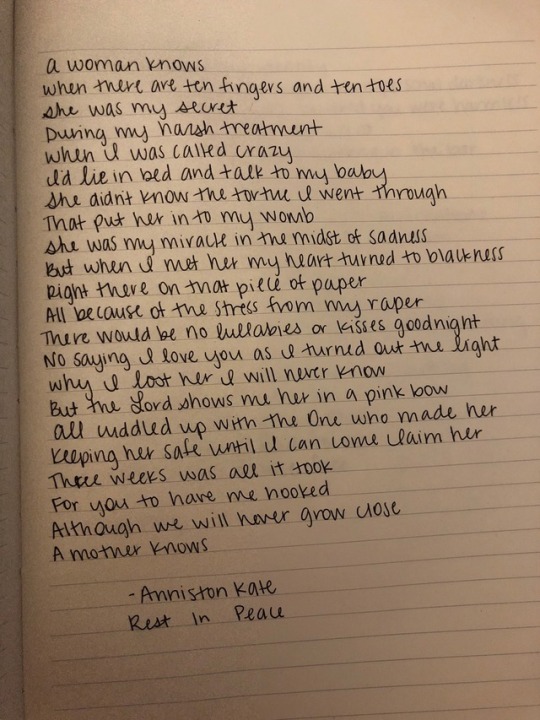 a woman knows
when there are ten fingers and ten toes
she was my secret
During my harsh treatment
when I was called crazy
I'd lie in bed and talk to my baby
She didn't know the tortue I went through
That put her in to my womb
she was my miracle in the midst of sadness
But when I met her my heart turned to blackness
Right there on that piece of paper
All because of the stress from my raper
There would be no lullabies or kisses goodnight
No saying I love you as I turned out the light
why I lost her I will never know
But the Lord shows me her in a pink bow
all cuddled up with the One who made her
Keeping her safe until I can come claim her
Three weeks was all it took
For you to have me hooked
Although we will never grow close
A mother knows
-Anniston Kate
Rest In Peace